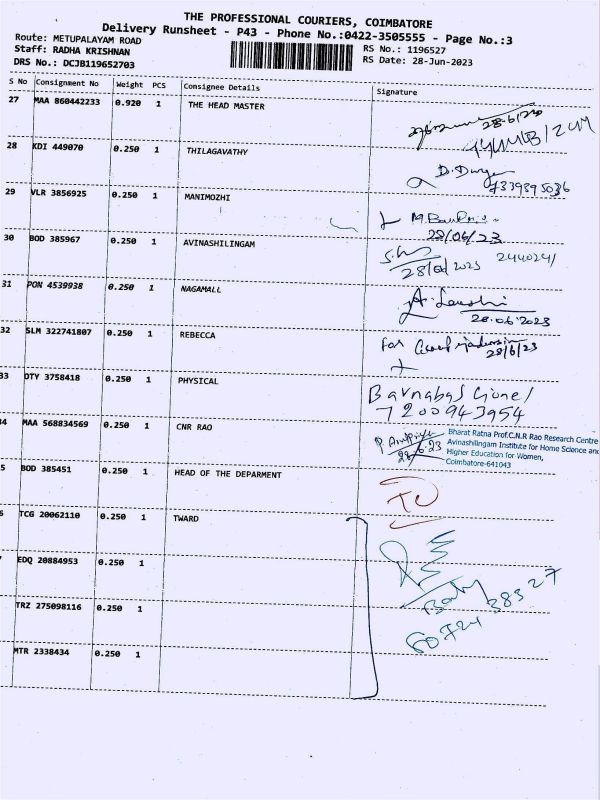 THE PROFESSIONAL COURIERS, COIMBATORE
Delivery Runsheet - P43 - Phone No.:0422-3505555 - Page No.:3
Route: METUPALAYAM ROAD
RS No.: 1196527
Staff: RADHA KRISHNAN
RS Date: 28-Jun-2023
DRS No.: DCJB119652703
S No Consignment No Weight PCS Consignee Details Signature
27 MAA 860442233 0.920 1 THE HEAD MASTER
28.6/23
28 KDI 449070 0.250 1 THILAGAVATHY
D. Durga
7339395036
29 VLR 3856925 0.250 1 MANIMOZHI
28/06/23
30 BOD 385967 0.250 1 AVINASHILINGAM
2440241
28/06/2023
31 PON 4539938 0.250 1 NAGAMALL
28.06.2023
32 SLM 322741807 0.250 1 REBECCA
For
28/6/23
33 DTY 3758418 0.250 1 PHYSICAL
Barnabas Lionel
7200943954
34 MAA 568834569 0.250 1 CNR RAO
28.6.23
Bharat Ratna Prof.C.N.R Rao Research Centre
Avinashilingam Institute for Home Science and
Higher Education for Women,
Coimbatore-641043
5 BOD 385451 0.250 1 HEAD OF THE DEPARMENT
6 TCG 20062110 0.250 1 TWARD
EDQ 20884953 0.250 1
TRZ 275098116 0.250 1
MTR 2338434 0.250 1